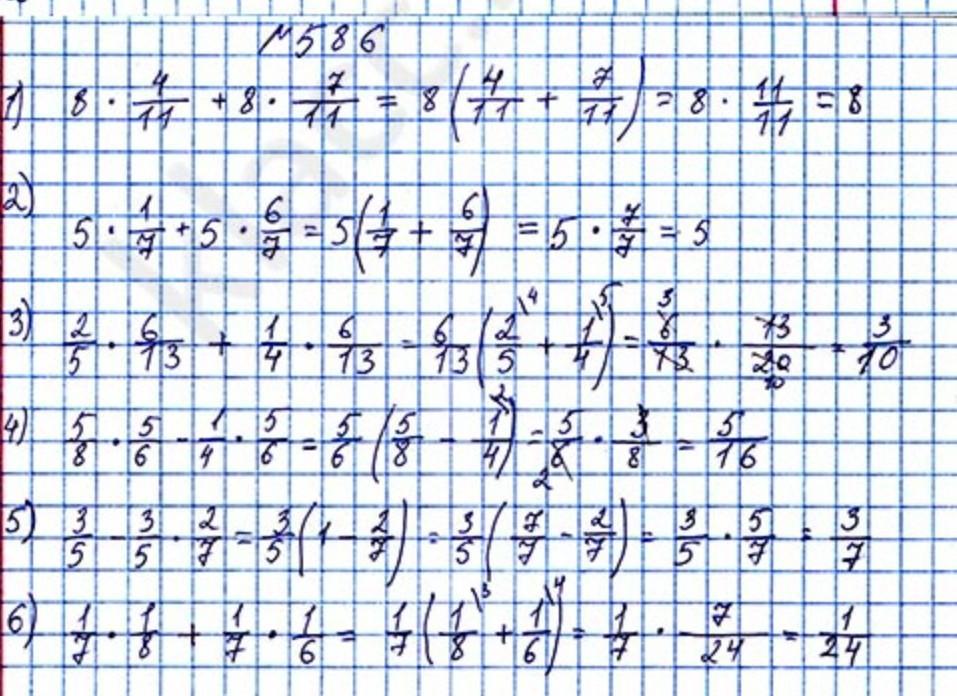 №586
1) 8 · 4/11 + 8 · 7/11 = 8 (4/11 + 7/11) = 8 · 11/11 = 8
2) 5 · 1/7 + 5 · 6/7 = 5 (1/7 + 6/7) = 5 · 7/7 = 5
3) 2/5 · 6/13 + 1/4 · 6/13 = 6/13 (2/5 \4 + 1/4 \5) = 6/13 3 · 13/20 10 = 3/10
4) 5/8 · 5/6 - 1/4 · 5/6 = 5/6 (5/8 - 1/4 \2) = 5/6 2 · 3/8 = 5/16
5) 3/5 - 3/5 · 2/7 = 3/5 (1 - 2/7) = 3/5 (7/7 - 2/7) = 3/5 · 5/7 = 3/7
6) 1/7 · 1/8 + 1/7 · 1/6 = 1/7 (1/8 \3 + 1/6 \4) = 1/7 · 7/24 = 1/24